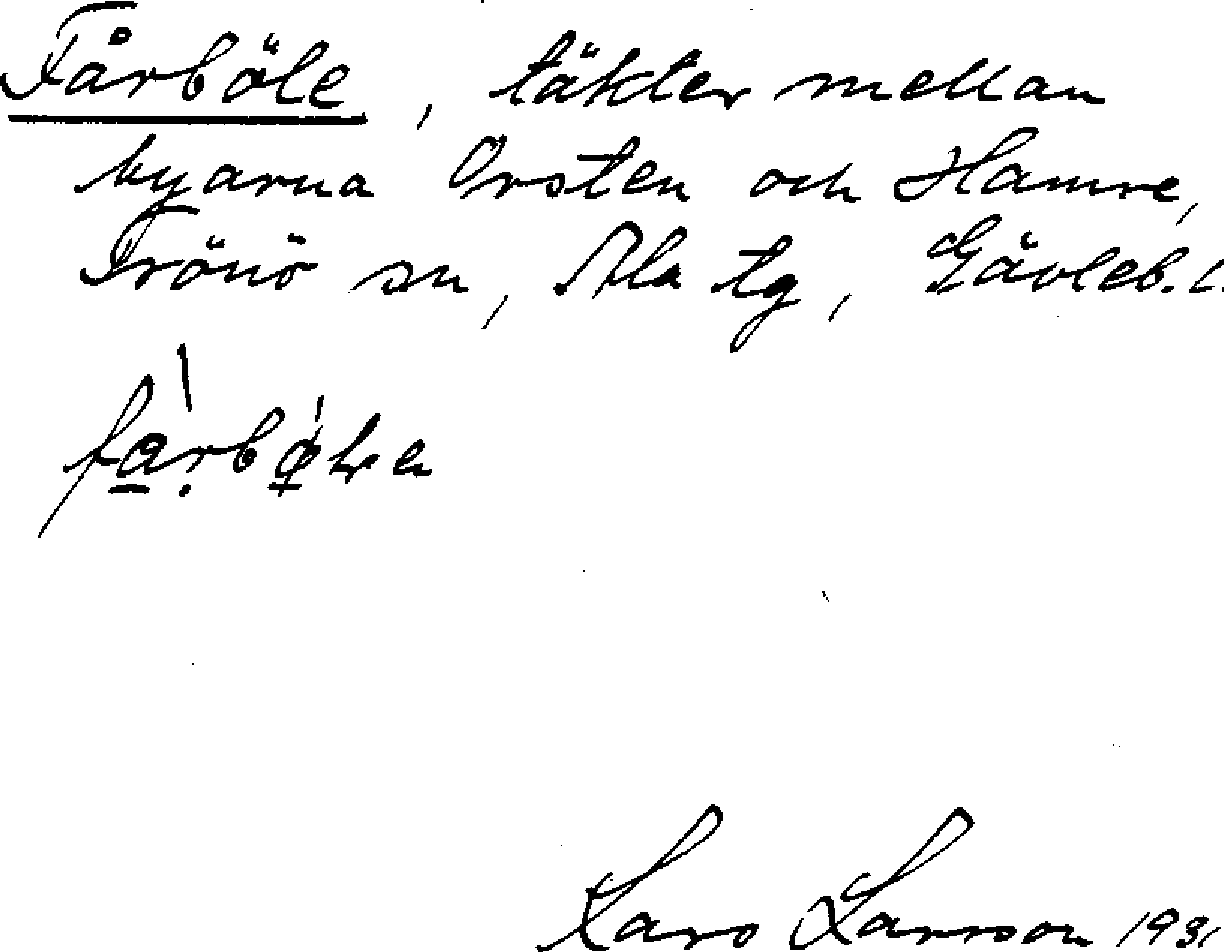 Fårböle, täkter mellan
byarna Orsten och Hamre,
Trönö sn, Ala tg, Gävleb. l.
Lars Larsson 1931